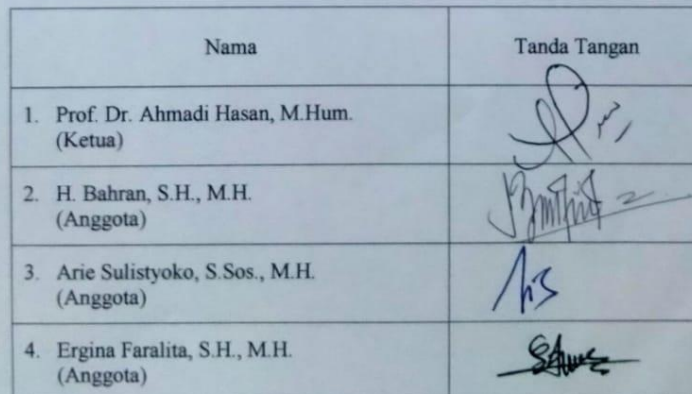 Nama Tanda Tangan
1. Prof. Dr. Ahmadi Hasan, M.Hum.
(Ketua)
2. H. Bahran, S.H., M.H.
(Anggota)
3. Arie Sulistyoko, S.Sos., M.H.
(Anggota)
4. Ergina Faralita, S.H., M.H.
(Anggota)